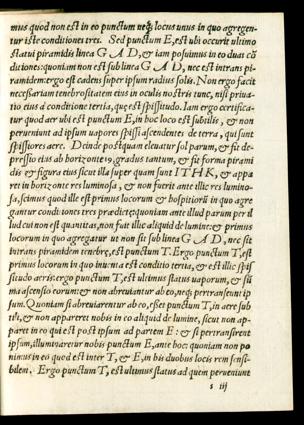 mus quod non est in eo punctum neq; locus unus in quo aggregen-
tur iste conditiones tres. Sed punctum E, est ubi occurit ultimo
statui piramidis linea G A D, & iam posuimus in eo duas cõ
ditiones: quoniam non est sub linea G A D, nec est intrans pi-
ramidem: ergo est cadens super ipsum radius solis. Non ergo facit
necessariam tenebrositatem eius in oculis nostris tunc, nisi priua-
tio eius à conditione tertia, que est spissitudo. Iam ergo certifica-
tur quod aer ubi est punctum E, in hoc loco est subtilis, & non
perueniunt ad ipsum uapores spissi ascendentes de terra, qui sunt
spissiores aere. Deinde postquam eleuatur sol parum, & fit de-
pressio eius ab horizonte 19, gradus tantum, & fit forma pirami
dis & figura eius sicut illa super quam sunt I T H K, & appa
ret in horizonte res luminosa, & non fuerit ante illic res lumino-
sa, scimus quod ille est primus locorum & hospitiorũ in quo agre
gantur conditiones tres prædictę: quoniam ante illud parum per il
lud cui non est quantitas, non fuit illic aliquid de lumine: & primus
locorum in quo agregatur ut non sit sub linea G A D, nec sit
intrans piramidem tenebrę, est punctum T. Ergo punctum T, est
primus locorum in quo inuenta est conditio tertia, & est illic spis
situdo aeris: ergo punctum T, est ultimus status uaporum, & sũ
ma ascensio eorum: & non abreuiantur ab eo, neq; pertranseunt ip
sum. Quoniam si abreuiarentur ab eo, esset punctum T, in aere sub
tili, & non appareret nobis in eo aliquid de lumine, sicut non ap-
paret in eo qui est post ipsum ad partem E: & si pertransirent
ipsum, illuminaretur nobis punctum E, ante hoc: quoniam non po
nimus in eo quod est inter T, & E, in his duobus locis rem sensi-
bilem. Ergo punctum T, est ultimus status ad quem perueniunt
s iij